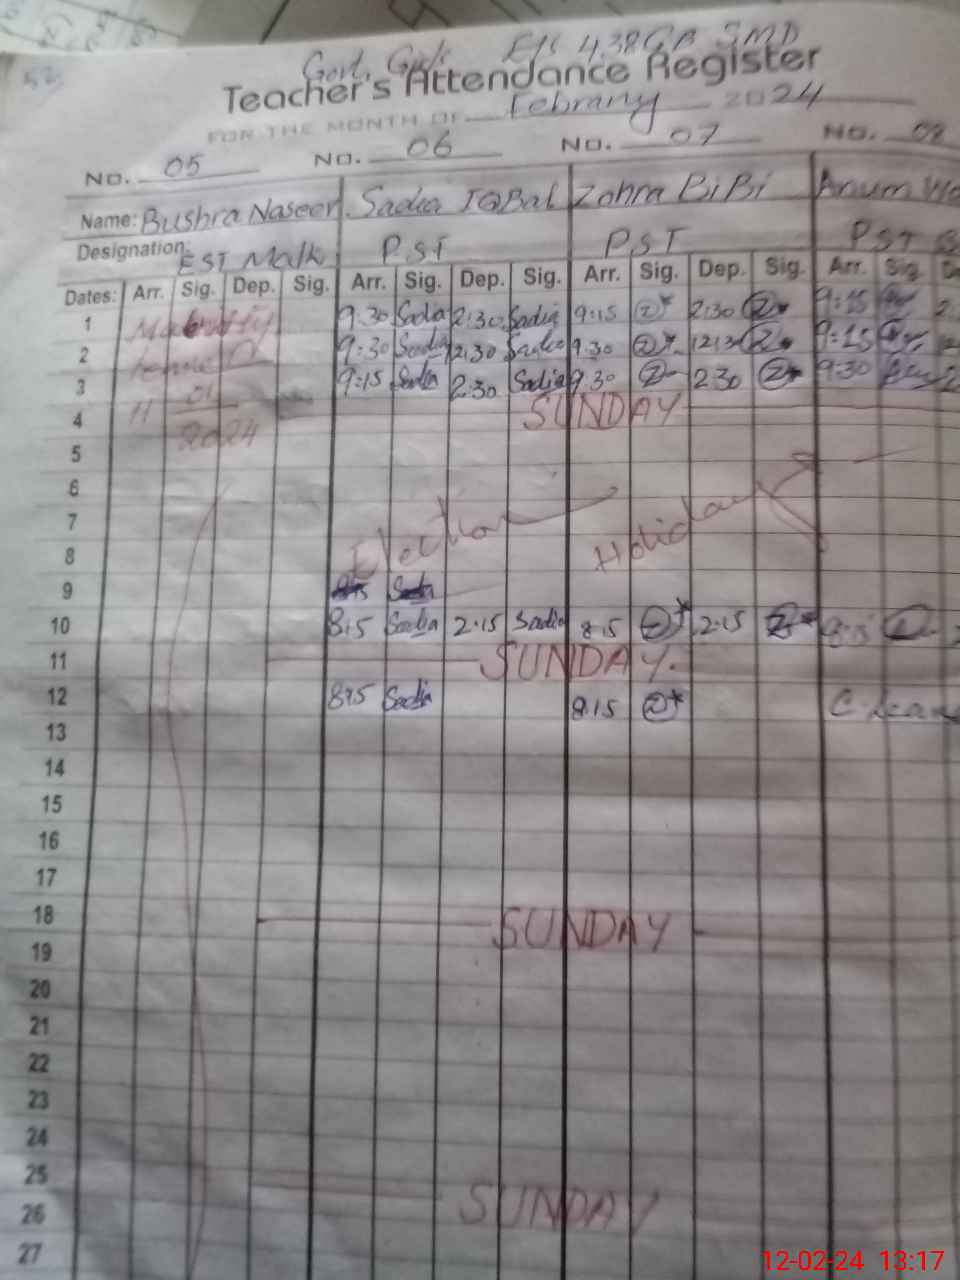 Govt. E/S 438 GB SMD
Teacher's Attendance Register
FOR THE MONTH OF Februany 2024
No. 05 No. 06 No. 07 No. 08
Name: Bushra Naseer Sadia IQBal Zohra BiBi Anum
Designation: EST Malk P.S.T P.S.T P.S.T
Dates: Arr. Sig. Dep. Sig. Arr. Sig. Dep. Sig. Arr. Sig. Dep. Sig. Arr. Sig.
1 9:30 Sadia 2:30 Sadia 9:15 2:30 9:15
2 9:30 Sadia 12:30 Sadia 9:30 12:30 9:15
3 9:15 Sadia 2:30 Sadia 9:30 2:30 9:30
4 11 01 SUNDAY
2024
5
6
7 Election Holiday
8
9
10 8:15 Sadia 2:15 Sadia 8:15 2:15 8:15
11 SUNDAY.
12 8:15 Sadia 8:15 C.Leave
13
14
15
16
17
18 SUNDAY
19
20
21
22
23
24
25 SUNDAY
26
27
12-02-24 13:17